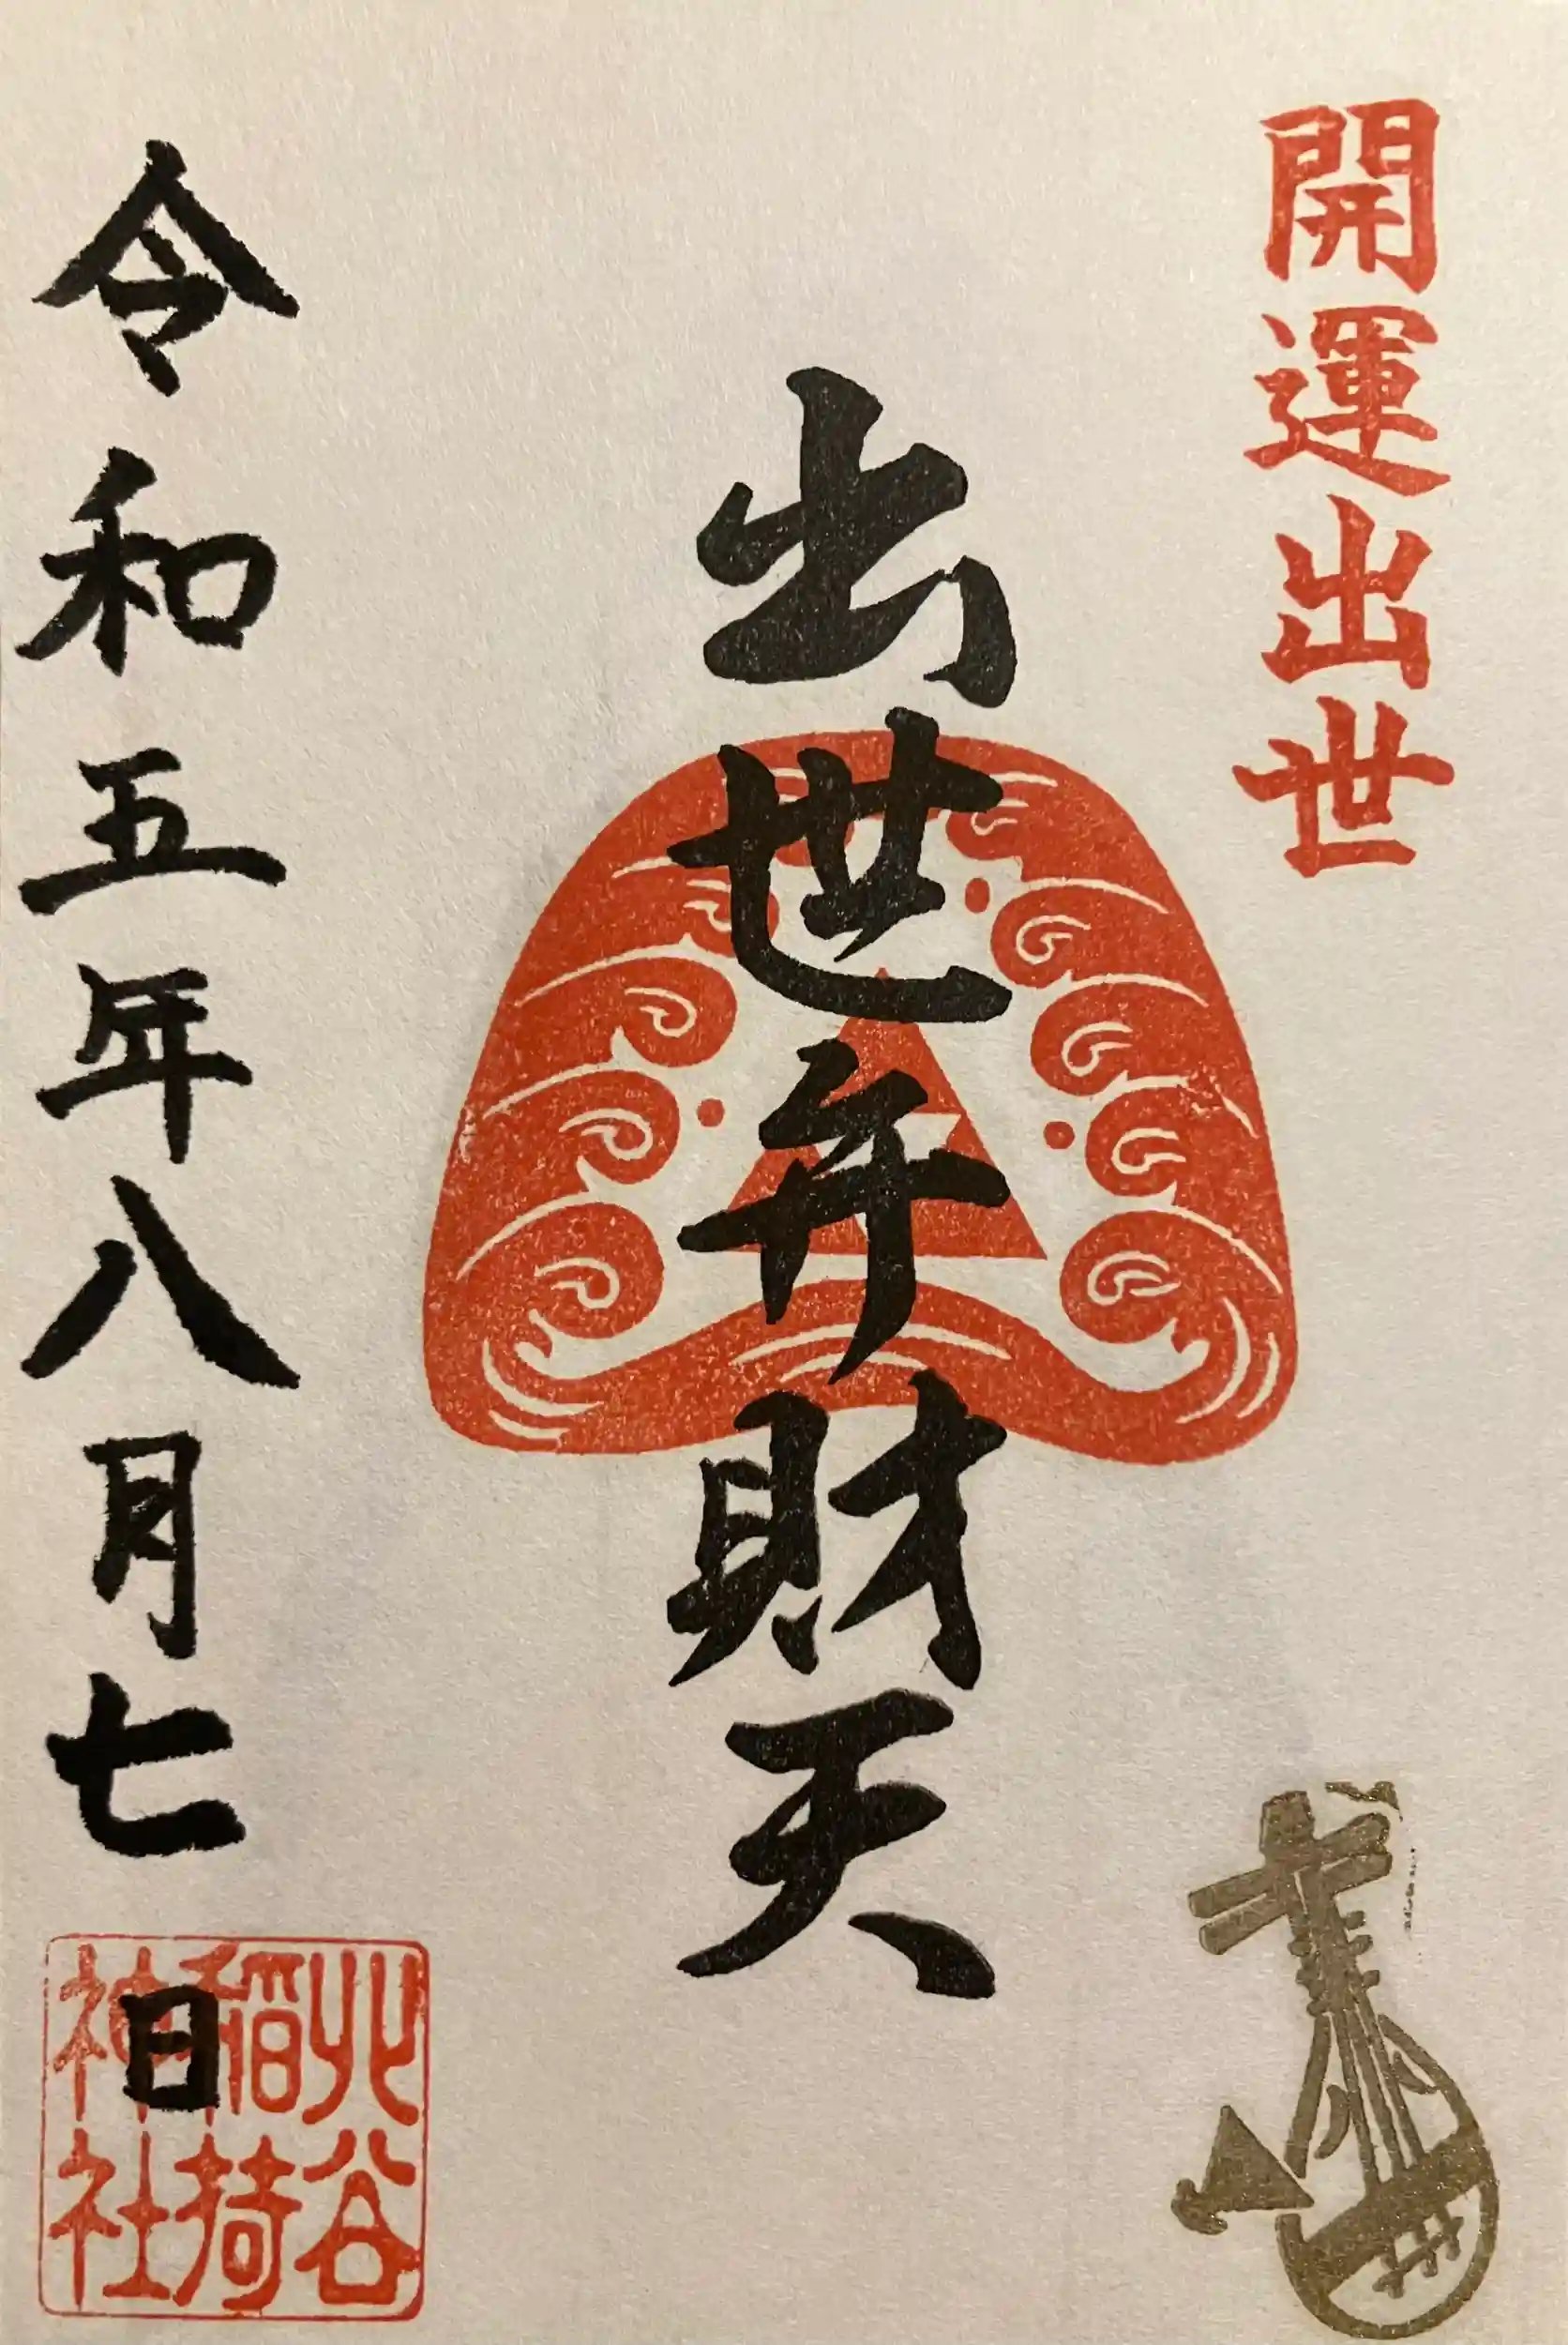 開運出世
出世弁財天
令和五年八月七日
北谷
稲荷
神社